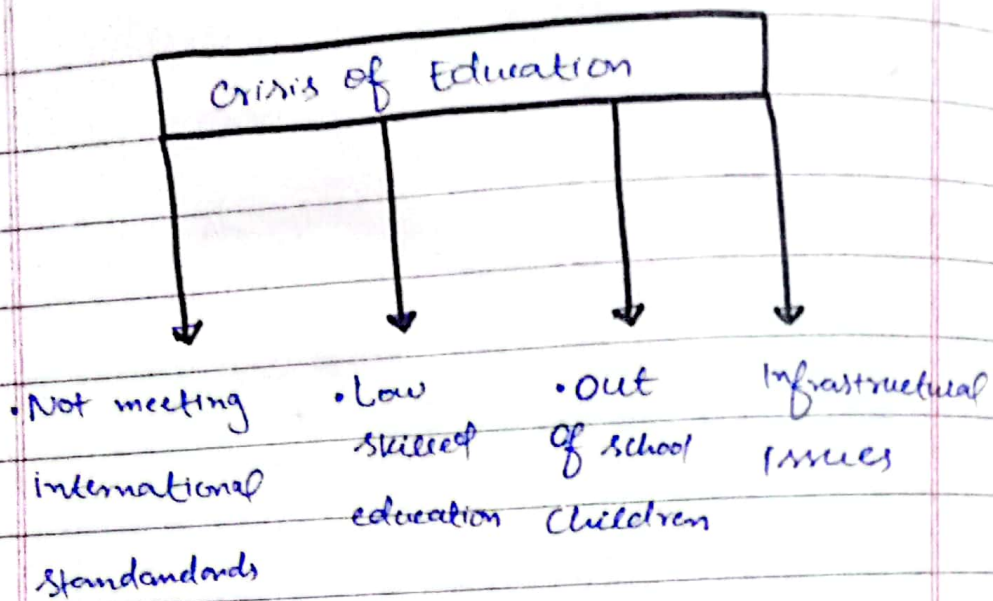 Crisis of Education
• Not meeting
international
standandards
• Low
skilled
education
• Out
of school
children
Infrastructural
Issues